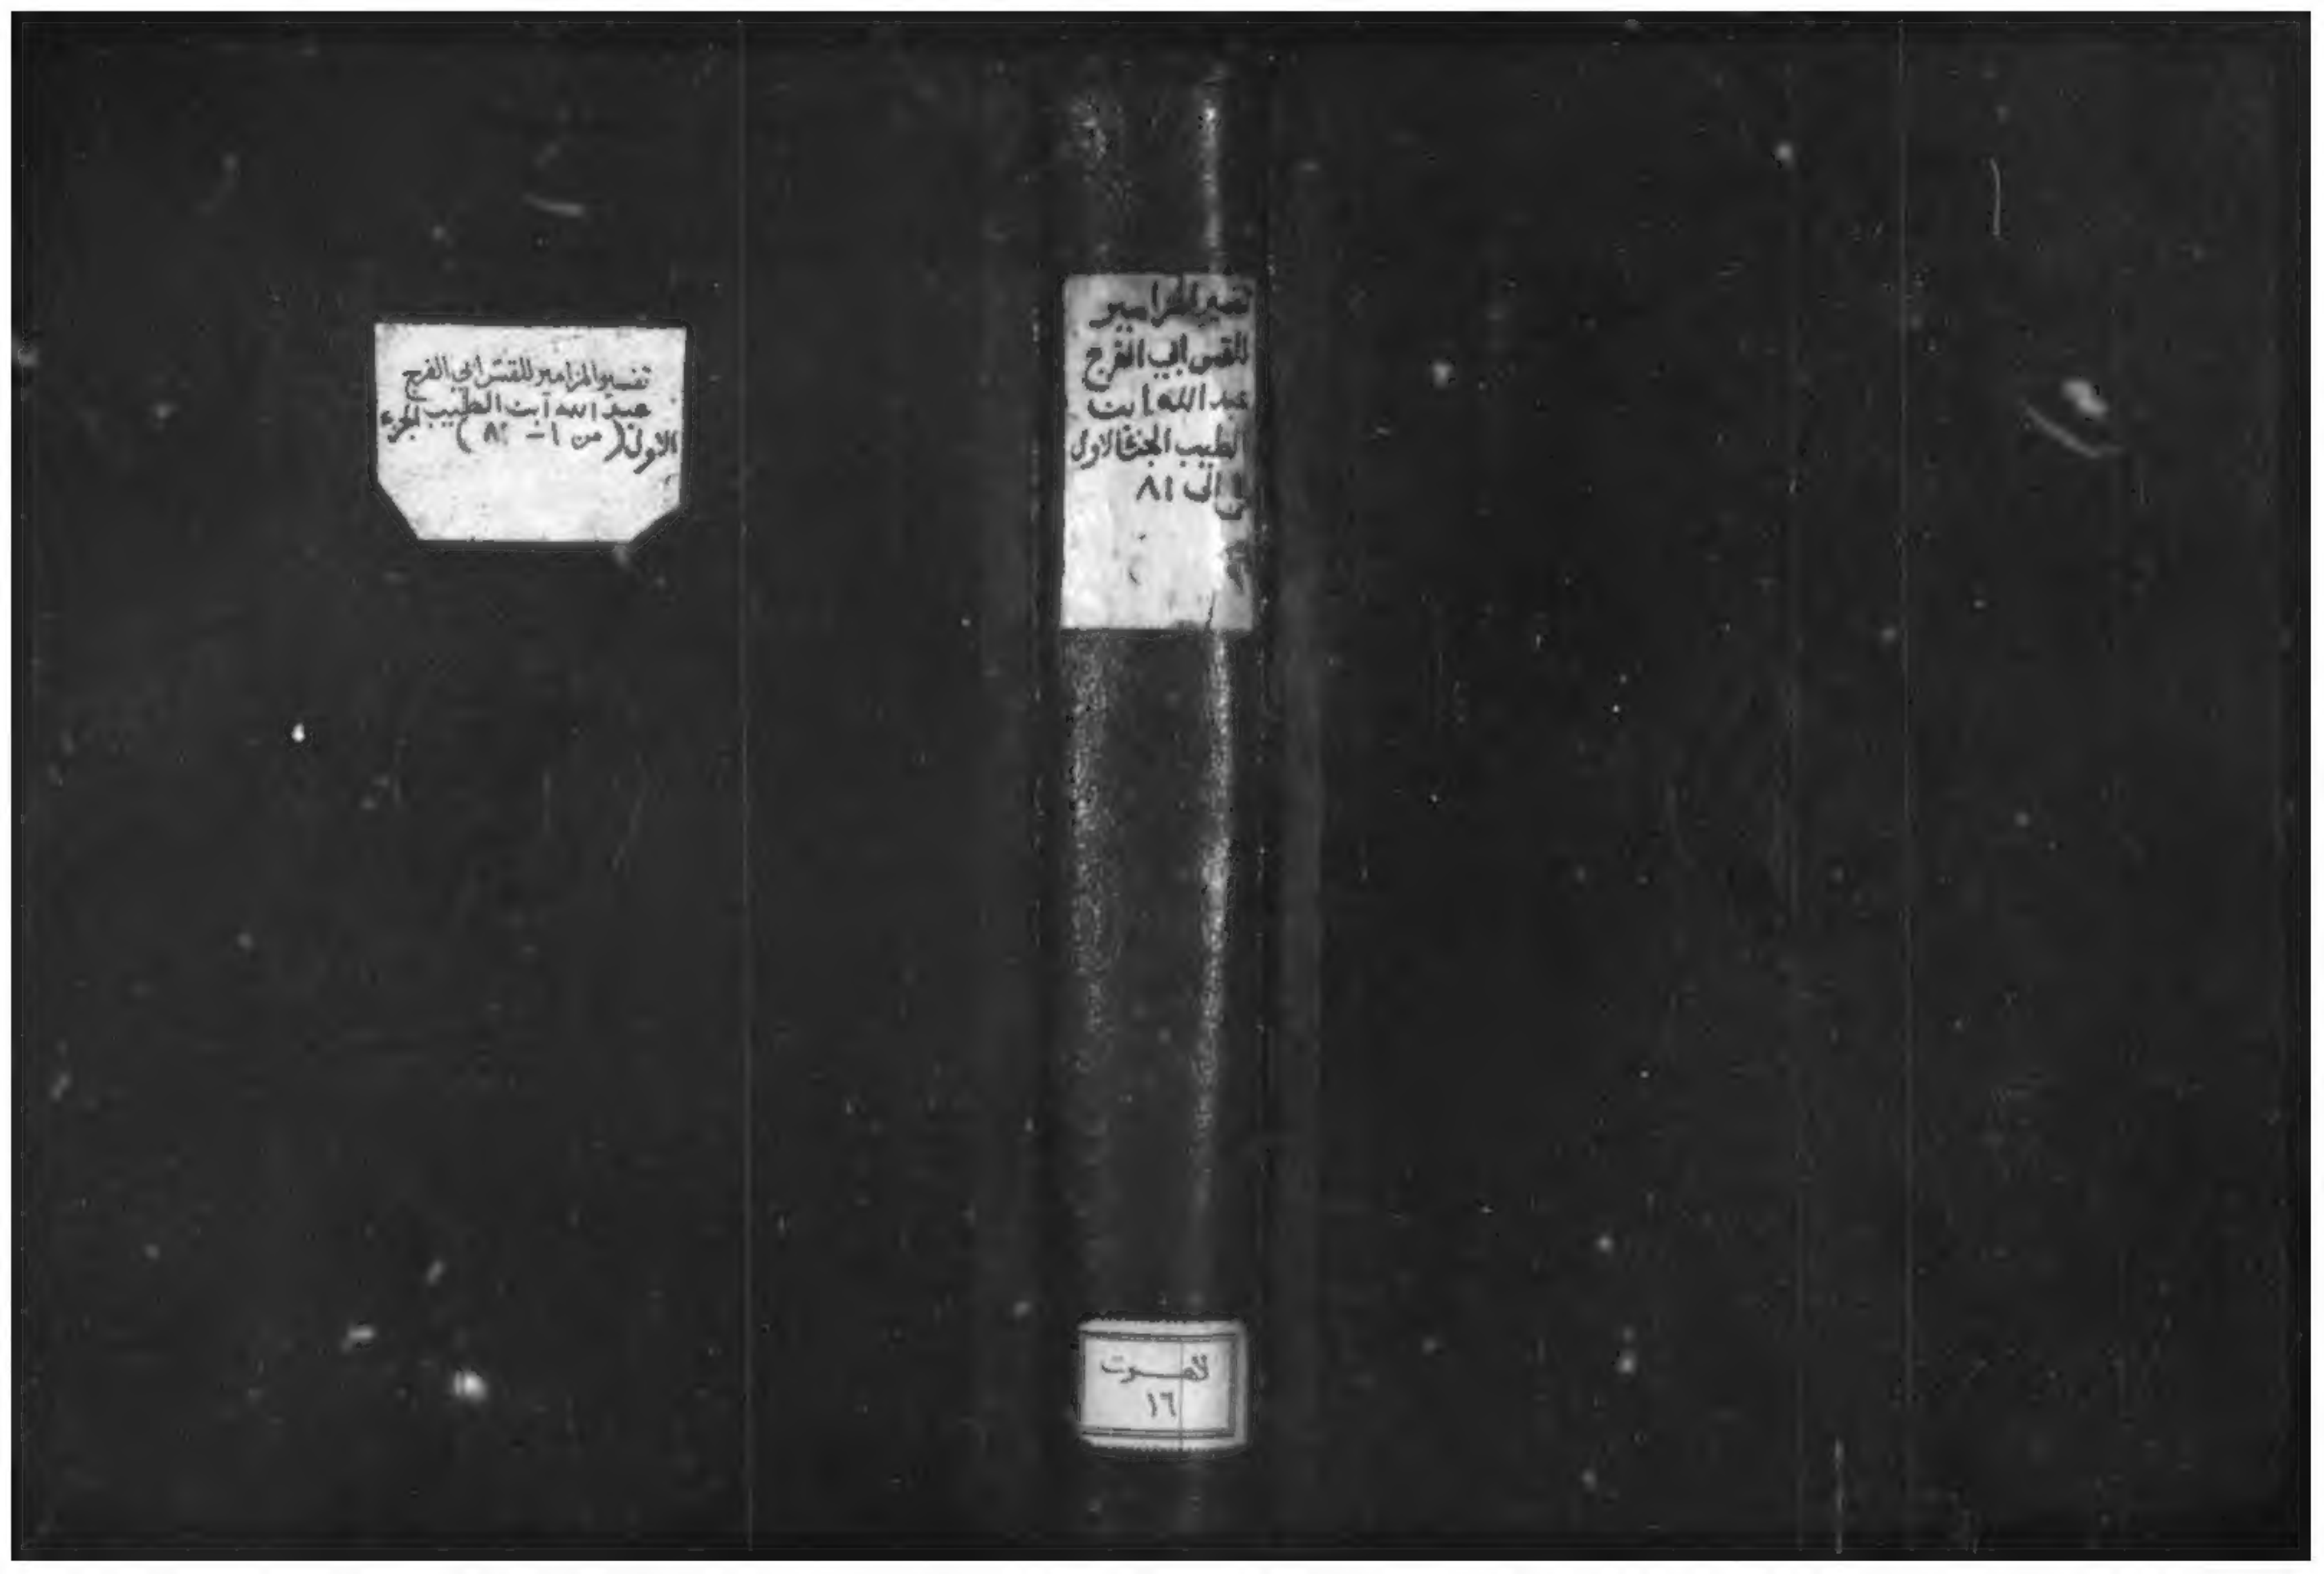 تفسير المزامير للقس ابي الفرج
عبد الله ابن الطيب الجزء
الاول (من ١ - ٨١)
تفسير المزامير
للقس ابي الفرج
عبد الله ابن
الطيب الجزء الاول
من ١ الى ٨١
لاهوت
١٦